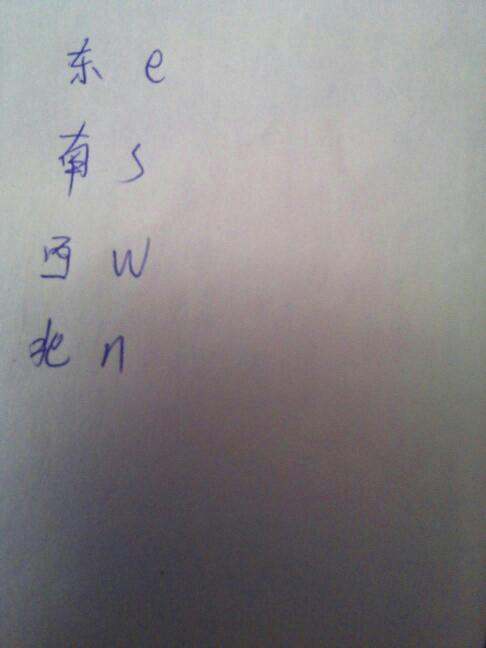 东 e
南 s
西 w
北 n